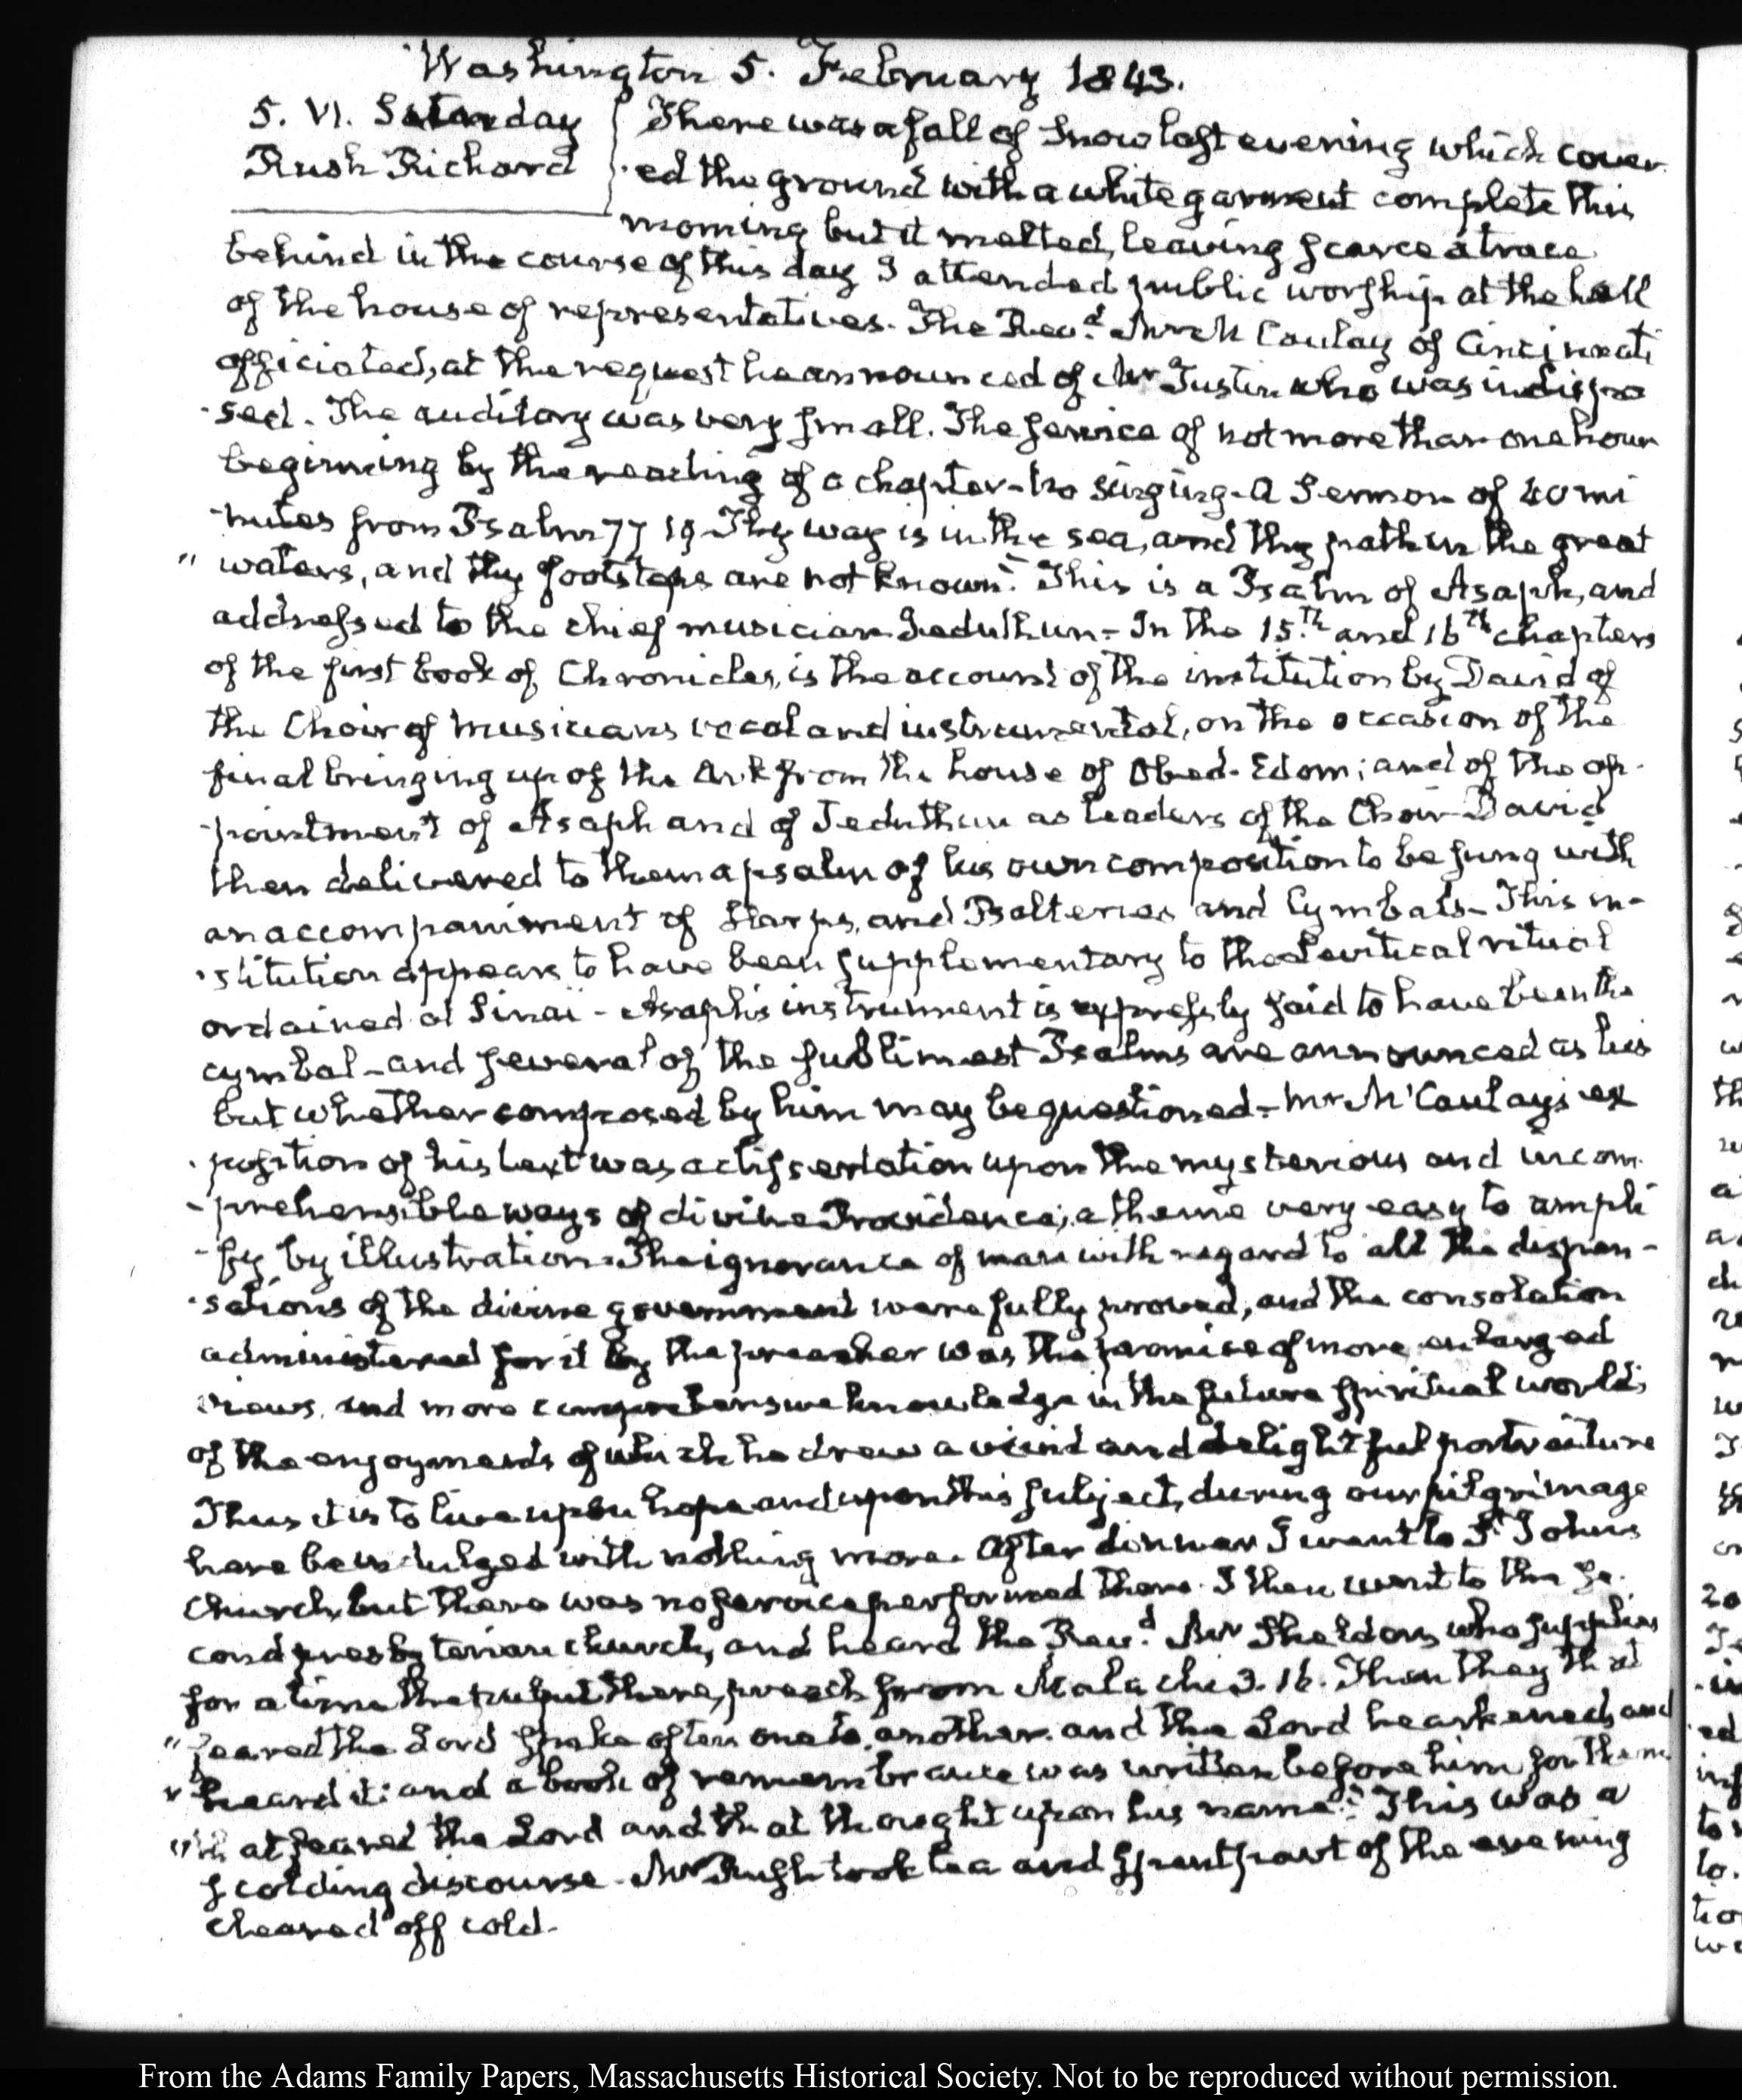 Washington 5. February 1843.
5. VI. Saturday
Rush Richard
There was a fall of Snow last evening which cover
-ed the ground with a white garment complete this
morning but it melted, leaving scarce a trace
behind in the course of this day I attended public worship at the hall
of the house of representatives. The Revd. Mr McCaulay of Cincinnati
officiated, at the request he announced of Mr Tustin who was indispo
-sed. The auditory was very small. The service of not more than one hour
beginning by the reading of a chapter - no singing - A Sermon of 40 mi
-nutes from Psalm 77 19 Thy way is in the sea, and thy path in the great
" waters, and thy footsteps are not known." This is a Psalm of Asaph, and
addressed to the chief musician Jeduthun - In the 15.th and 16th chapters
of the first book of Chronicles, is the account of the institution by David of
the Choir of musicians vocal and instrumental, on the occasion of the
final bringing up of the Ark from the house of Obed-Edom; and of the ap-
-pointment of Asaph and of Jeduthun as leaders of the Choir - David
then delivered to them a psalm of his own composition to be sung with
an accompaniment of Harps, and Psalteries and Cymbals - This in-
-stitution appears to have been supplementary to the Levitical ritual
ordained at Sinai - Asaph's instrument is expressly said to have been the
cymbal - and several of the sublimest Psalms are announced as his
but whether composed by him may be questioned - Mr McCaulay's ex
-position of his text was a dissertation upon the mysterious and incom
-prehensible ways of divine Providence; a theme very easy to ampli
-fy by illustration. The ignorance of man with regard to all the dispen-
-sations of the divine government were fully proved, and the consolation
administered for it by the preacher was the promise of more enlarged
views, and more comprehensive knowledge in the future spiritual world;
of the enjoyments of which he drew a vivid and delightful portraiture
Thus it is to live upon hope and upon this subject, during our pilgrimage
have be indulged with nothing more. After dinner I went to St Johns
Church, but there was no service performed there. I then went to the se-
cond presbyterian church, and heard the Revd. Mr Sheldon, who supplies
for a time the pulpit there, preach from Malachi 3. 16. Then they that
" feared the Lord spake often one to another. and the Lord hearkened, and
" heard it: and a book of remembrance was written before him for them
" that feared the Lord and that thought upon his name." This was a
scolding discourse. Mr Rush took tea and spent part of the evening
cleared off cold.
From the Adams Family Papers, Massachusetts Historical Society. Not to be reproduced without permission.